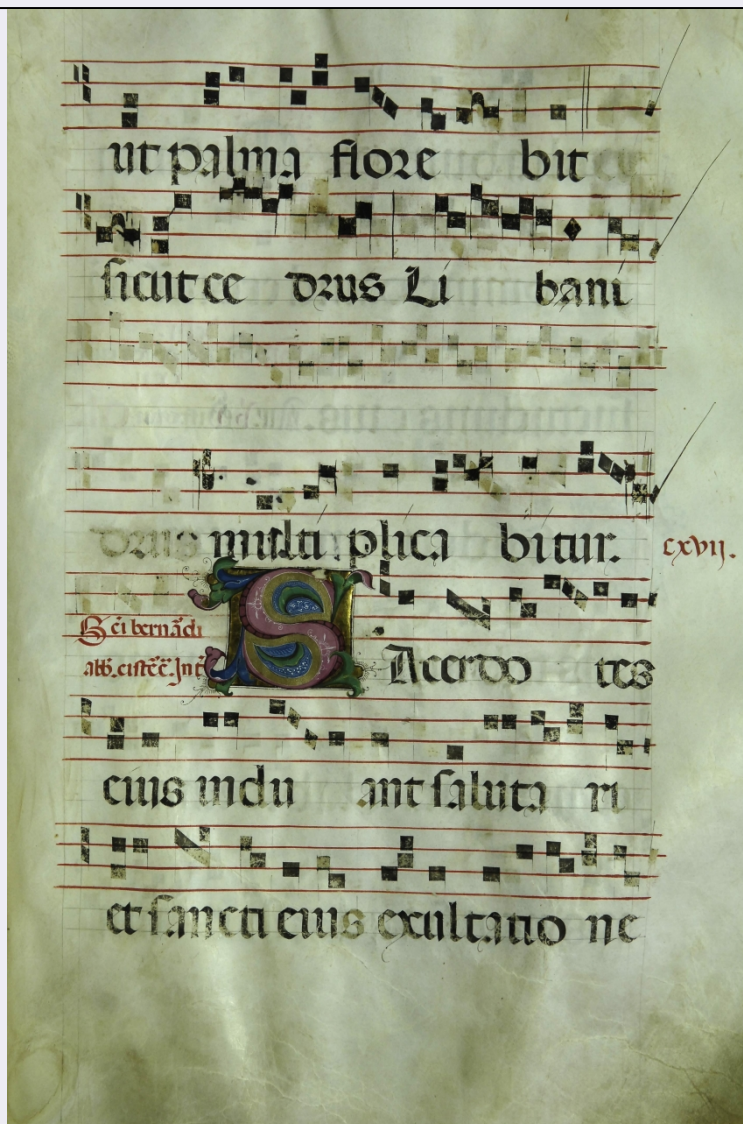 ut palma flore bit
sicut ce drus Li bani
drus multi plica bitur.
cxvij.
Sci bernadi
abb. cistec. Int
SAcerdo tes
eius indu ant saluta ri
et sancti eius exultatio ne